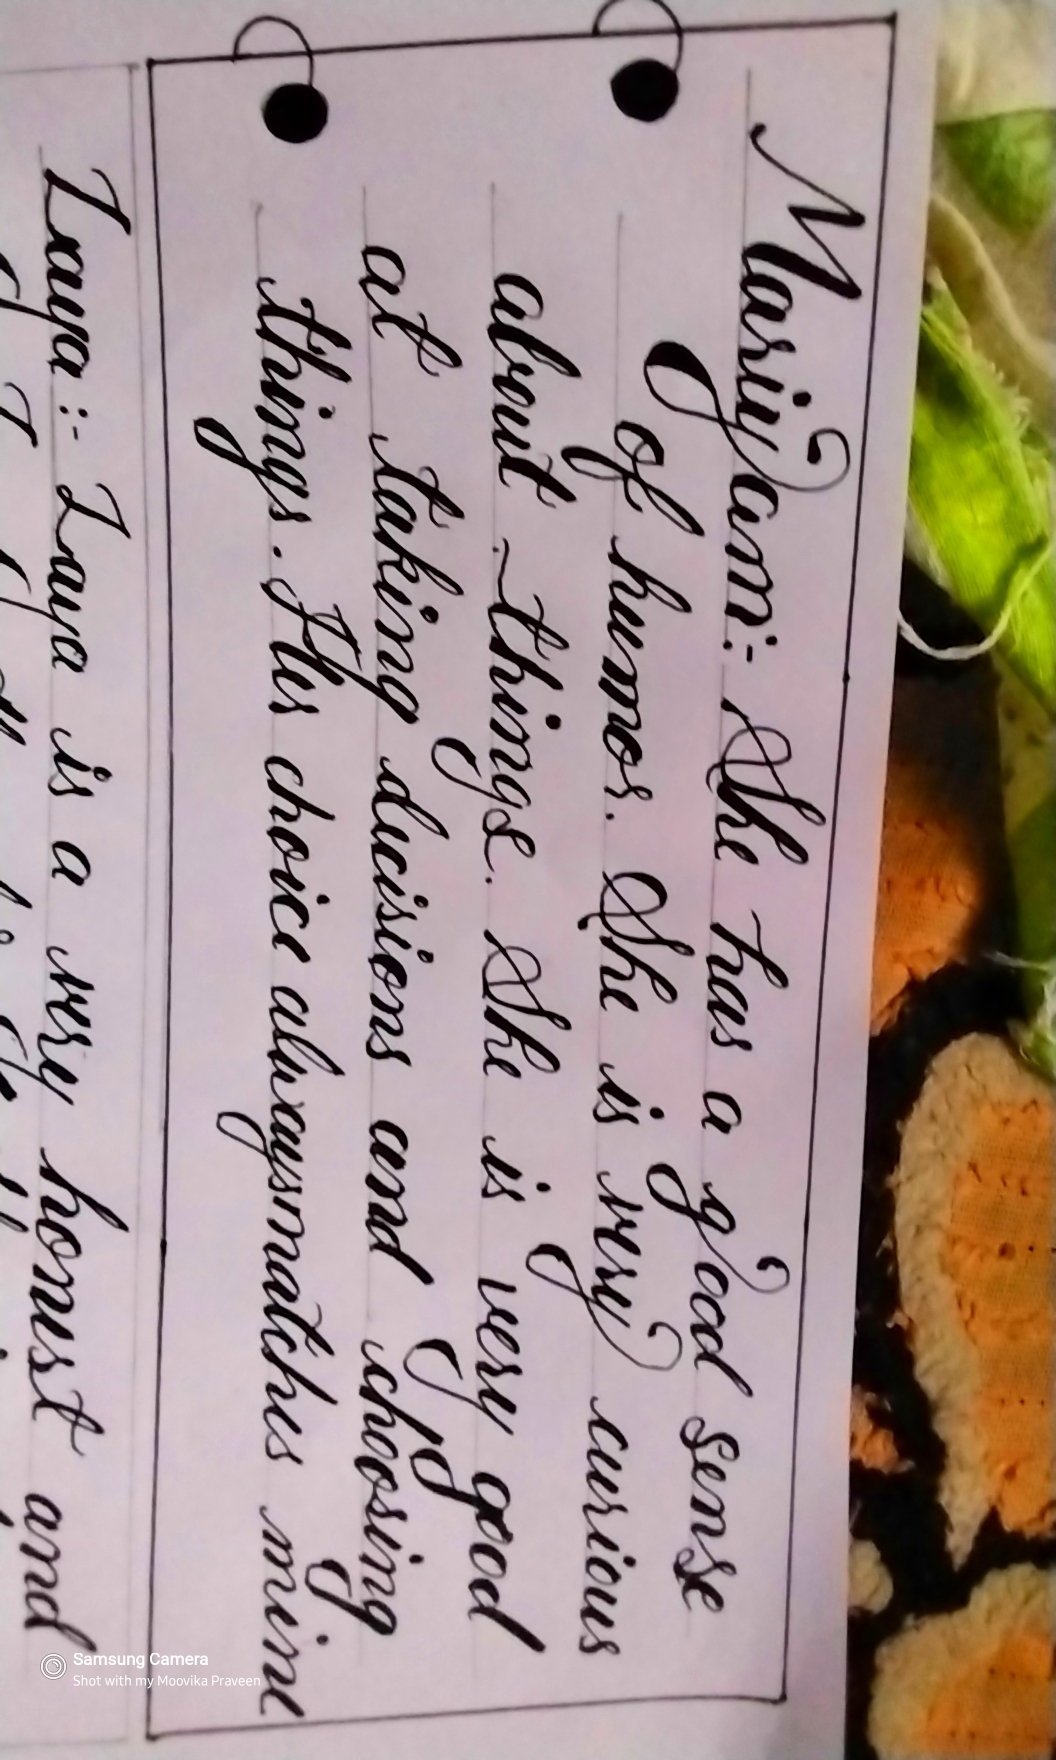 Mariyam:- She has a good sense
of humor. She is very curious
about things. She is very good
at taking decisions and choosing
things. Her choice alwaysmatches mine
Zaya:- Zaya is a very honest and
Samsung Camera
Shot with my Moovika Praveen